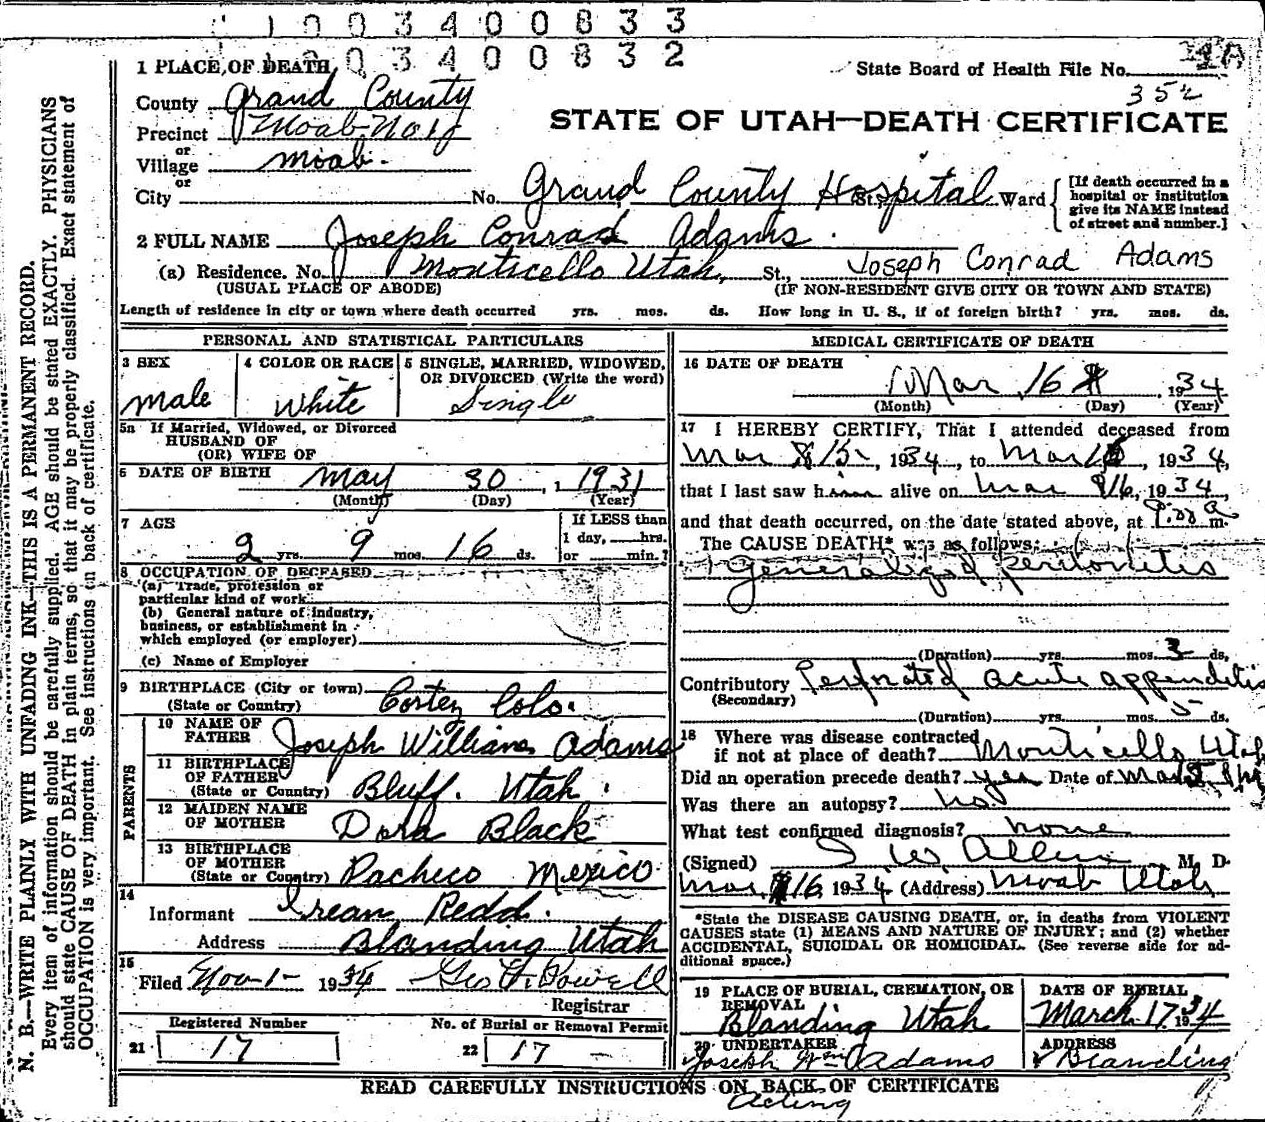 1 0 0 3 4 0 0 8 3 3
0 3 4 0 0 8 3 2
1 PLACE OF DEATH
State Board of Health File No.
352
County Grand County
STATE OF UTAH—DEATH CERTIFICATE
Precinct Moab No 1
or
Village Moab.
or
City No. Grand County Hospital St., Ward
[If death occurred in a
hospital or institution
give its NAME instead
of street and number.]
2 FULL NAME Joseph Conrad Adams.
(a) Residence. No. Monticello Utah, St., Joseph Conrad Adams
(USUAL PLACE OF ABODE) (IF NON-RESIDENT GIVE CITY OR TOWN AND STATE)
Length of residence in city or town where death occurred yrs. mos. ds. How long in U. S., if of foreign birth? yrs. mos. ds.
PERSONAL AND STATISTICAL PARTICULARS
3 SEX
Male
4 COLOR OR RACE
White
5 SINGLE, MARRIED, WIDOWED,
OR DIVORCED (Write the word)
Single
5a If Married, Widowed, or Divorced
HUSBAND OF
(OR) WIFE OF
6 DATE OF BIRTH May 30, 1931
(Month) (Day) (Year)
7 AGE
2 yrs. 9 mos. 16 ds.
If LESS than
1 day, hrs.
or min.?
8 OCCUPATION OF DECEASED
(a) Trade, profession or
particular kind of work
(b) General nature of industry,
business, or establishment in
which employed (or employer)
(c) Name of Employer
9 BIRTHPLACE (City or town) Cortez Colo.
(State or Country)
PARENTS
10 NAME OF
FATHER Joseph William Adams
11 BIRTHPLACE
OF FATHER
(State or Country) Bluff. Utah.
12 MAIDEN NAME
OF MOTHER Dora Black
13 BIRTHPLACE
OF MOTHER
(State or Country) Pacheco Mexico
14
Informant Redd.
Address Blanding Utah
15
Filed Nov-1- 1934 Geo Powell
Registrar
Registered Number
21 17
No. of Burial or Removal Permit
22 17 —
MEDICAL CERTIFICATE OF DEATH
16 DATE OF DEATH
Mar 16, 1934
(Month) (Day) (Year)
17 I HEREBY CERTIFY, That I attended deceased from
Mar 15, 1934, to Mar 16, 1934,
that I last saw him alive on Mar 16, 1934,
and that death occurred, on the date stated above, at m.
The CAUSE DEATH* was as follows:
Generalized peritonitis
(Duration) yrs. mos. 3 ds.
Contributory Perforated acute appendicitis
(Secondary)
(Duration) yrs. mos. 5 ds.
18 Where was disease contracted
if not at place of death? Monticello Utah
Did an operation precede death? yes Date of
Was there an autopsy? no
What test confirmed diagnosis? none
(Signed) I W Allen M. D.
Mar. 16 1934 (Address) Moab Utah,
*State the DISEASE CAUSING DEATH, or, in deaths from VIOLENT
CAUSES state (1) MEANS AND NATURE OF INJURY; and (2) whether
ACCIDENTAL, SUICIDAL OR HOMICIDAL. (See reverse side for ad-
ditional space.)
19 PLACE OF BURIAL, CREMATION, OR
REMOVAL
Blanding Utah
DATE OF BURIAL
March 17 1934
20 UNDERTAKER
Joseph Wm Adams
ADDRESS
Blanding
READ CAREFULLY INSTRUCTIONS ON BACK OF CERTIFICATE
Acting
N. B.—WRITE PLAINLY WITH UNFADING INK—THIS IS A PERMANENT RECORD.
Every item of information should be carefully supplied. AGE should be stated EXACTLY. PHYSICIANS
should state CAUSE OF DEATH in plain terms, so that it may be properly classified. Exact statement of
OCCUPATION is very important. See instructions on back of certificate.